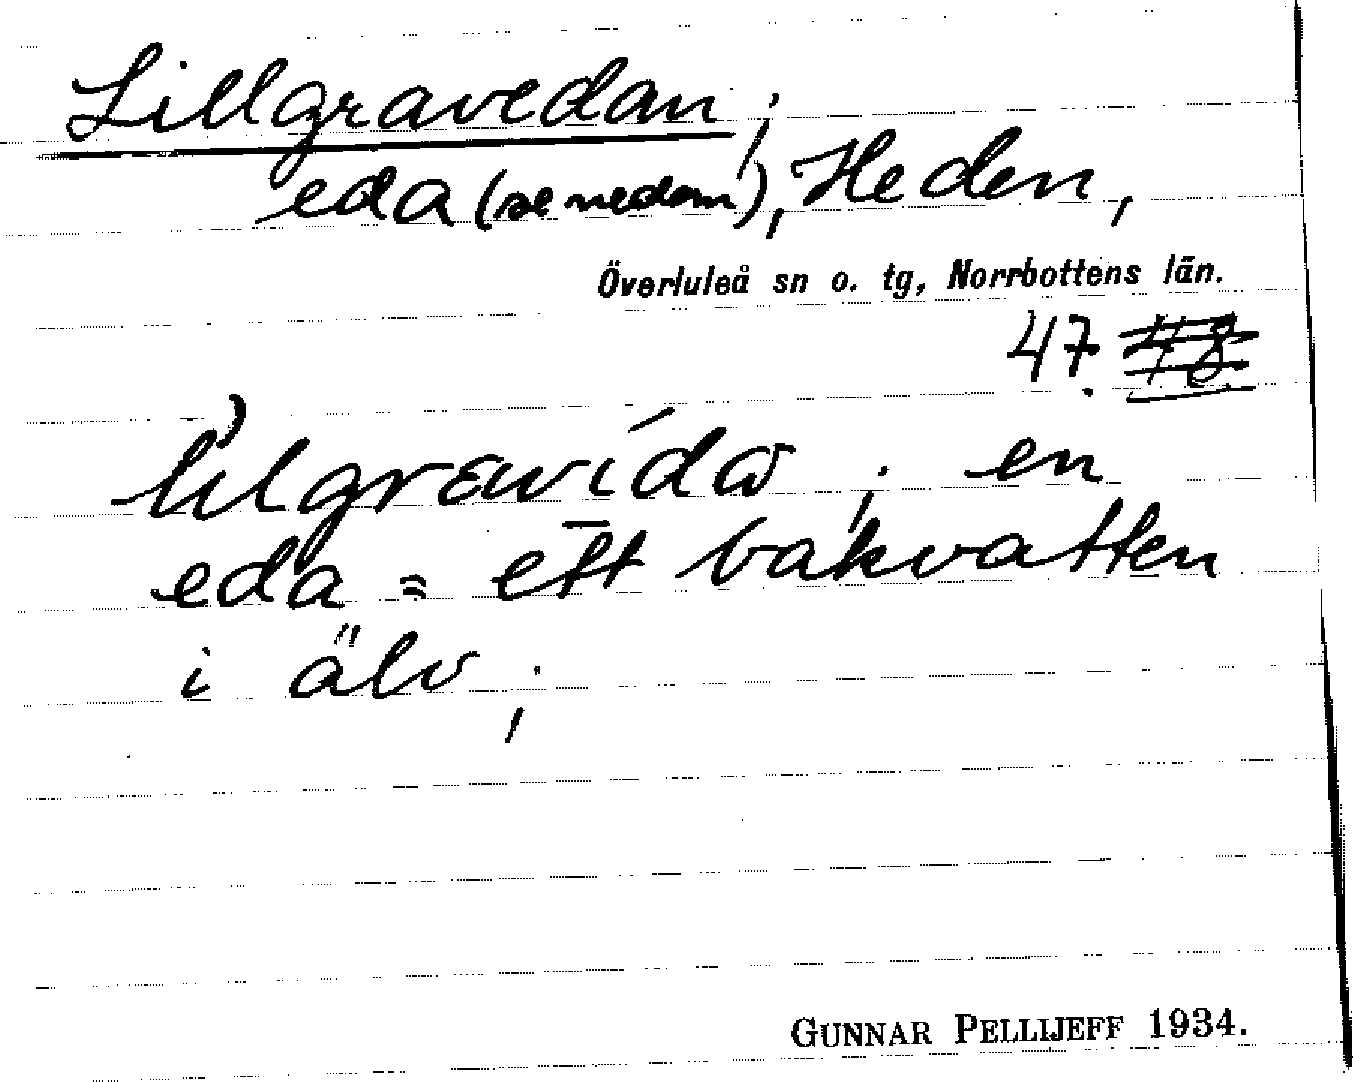 Lillgravedan;
eda (se nedam), Heden,
Överluleå sn o. tg, Norrbottens län.
47.
eda = ett bakvatten
; en
i älv;
GUNNAR PELLIJEFF 1934.